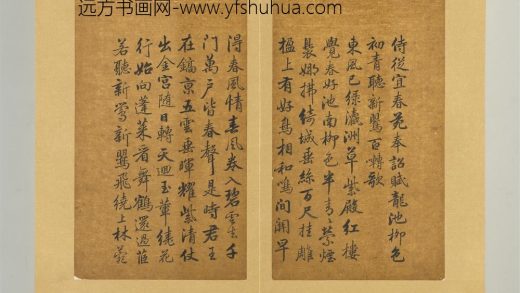 远方书画网- www.yfshuhua.com/
侍從宜春苑奉詔賦龍池柳色
初青聽新鶯百轉歌
東風已綠瀛洲草紫殿紅樓
覺春好池南柳色半青縈煙
裊娜拂綺城垂絲百尺挂雕
楹上有好鳥相和鳴間關早
得春風情春風卷入碧雲去千
門萬戶皆春聲是時君王
在鎬京五雲垂暉耀紫清仗
出金宮隨日轉天迴玉輦繞花
行始向蓬萊看舞鶴還過茝
若聽新鶯新鶯飛繞上林苑